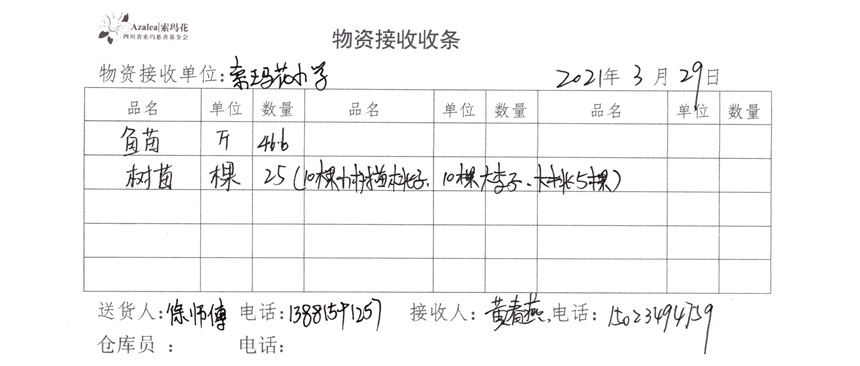 Azalea|索玛花
四川省索玛慈善基金会
物资接收收条
物资接收单位:索玛花小学 2021年 3 月 29日
品名 单位 数量 品名 单位 数量 品名 单位 数量
鱼苗 斤 46.6
树苗 棵 25 (10棵 桃子, 10棵大李子、 5棵)
送货人:徐师傅 电话:13881591257 接收人:黄春燕,电话:15023494759
仓库员 : 电话: